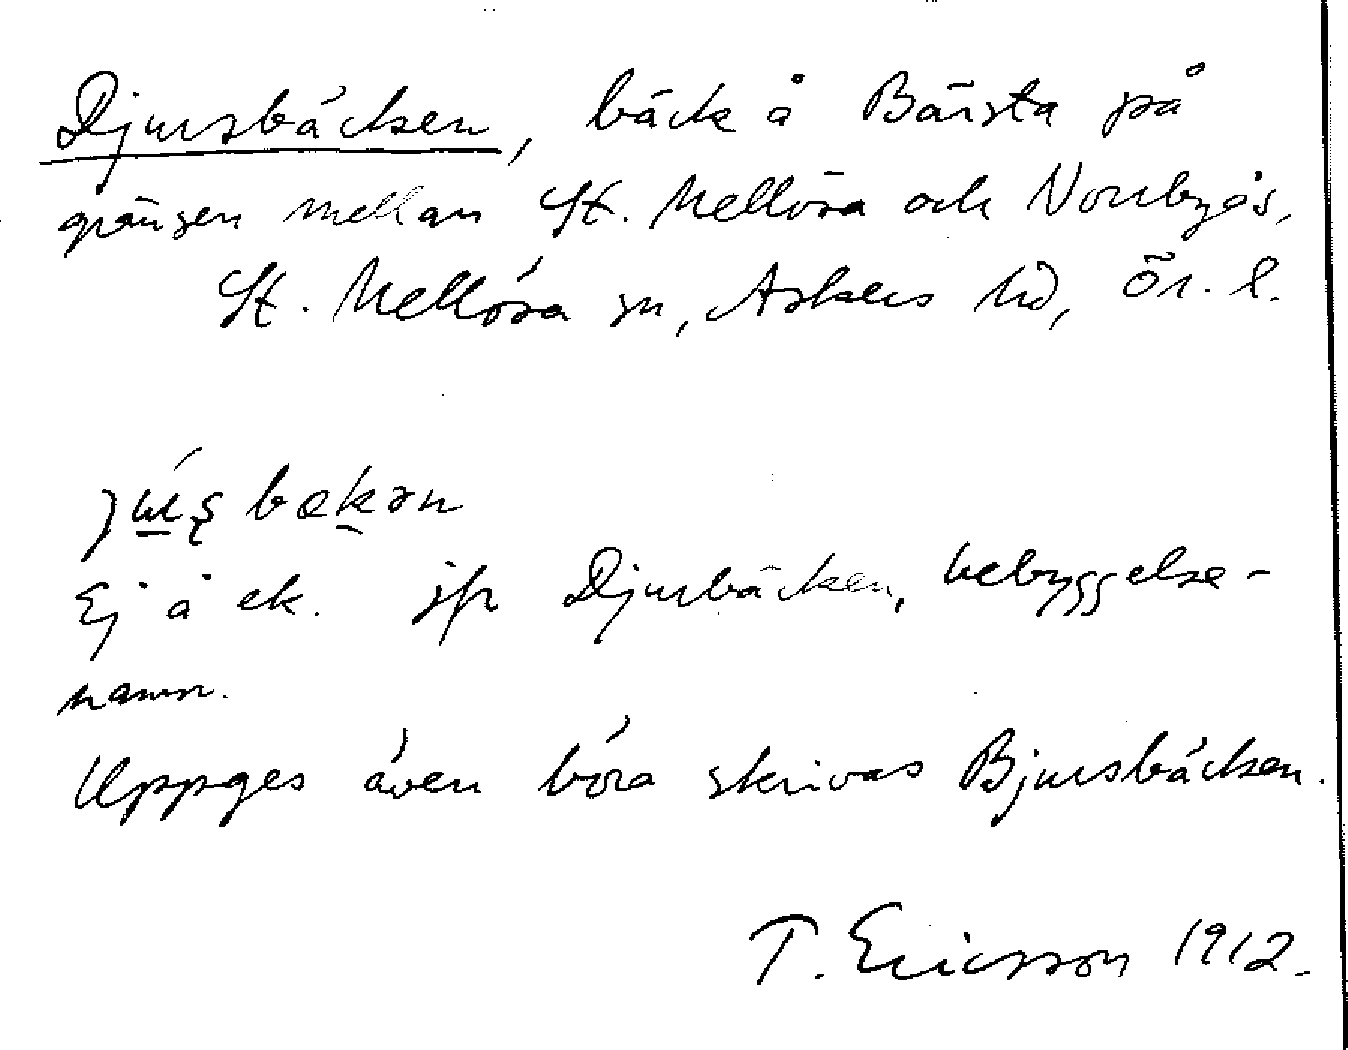 Djursbäcken, bäck å Bärsta på
gränsen mellan St. Mellösa och Norrbyås,
St. Mellösa sn, Askers hd, Ör. l.
bækən
Ej å ek. jfr Djurbäcken, bebyggelse-
namn.
Uppges även böra skrivas Bjursbäcken.
T. Ericsson 1912.